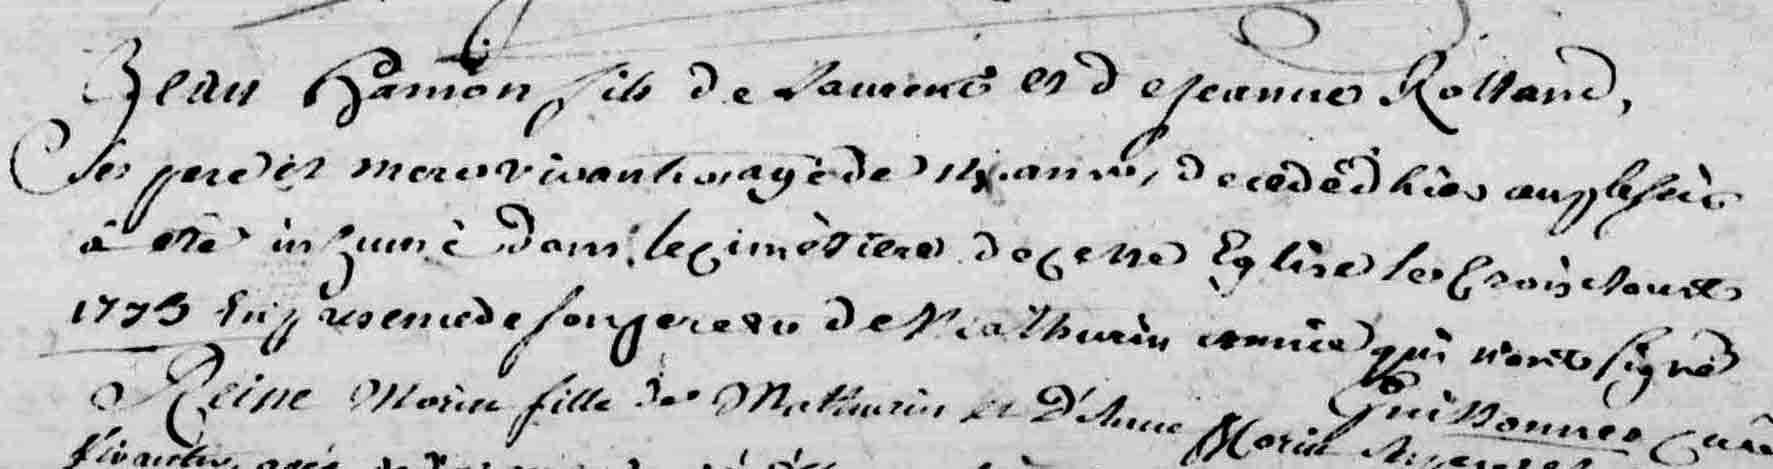 Jean hamon fils de Laurent et de jeanne Rolland,
ses pere et mere vivants agé de six ans, decedé d'hier au plessis
à eté inhumé dans le cimètiere de cette Eglise le trois aout
1773 En presence de son pere et de Mathurin qui n'ont signé
Guillonnet curé
Reine Morin fille de Mathurin et D'Anne Morin
vivants, agée de